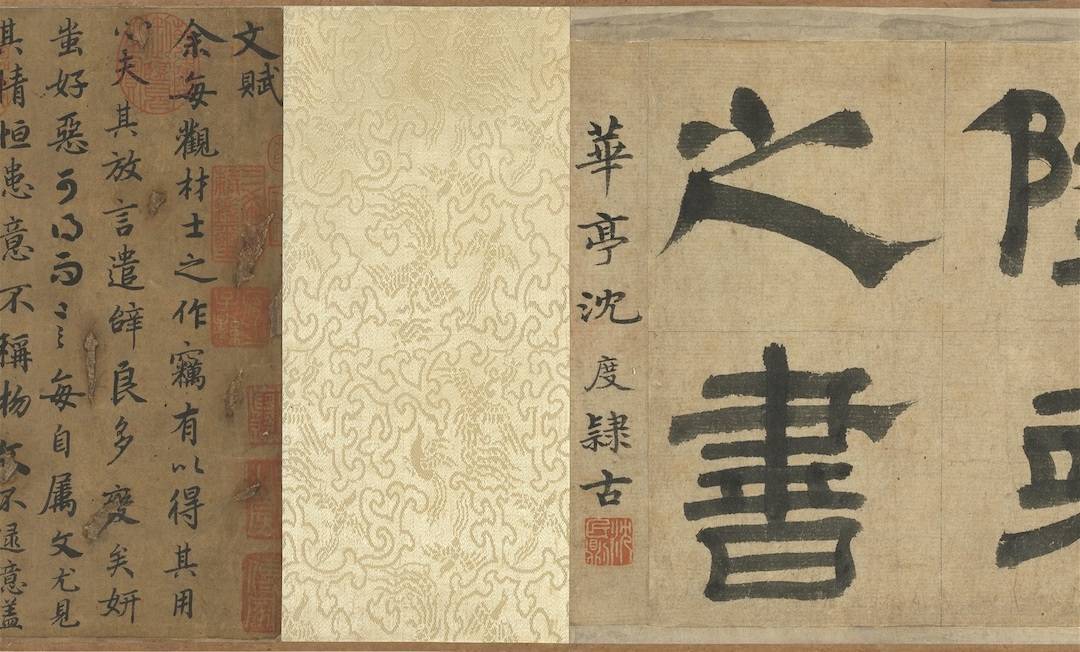 之書
華亭沈度隸古
沈民則
文賦
余每觀材士之作竊有以得其用
心夫其放言遣辭良多變矣妍
蚩好惡可得而言每自属文尤見
其情恒患意不稱物文不逮意盖